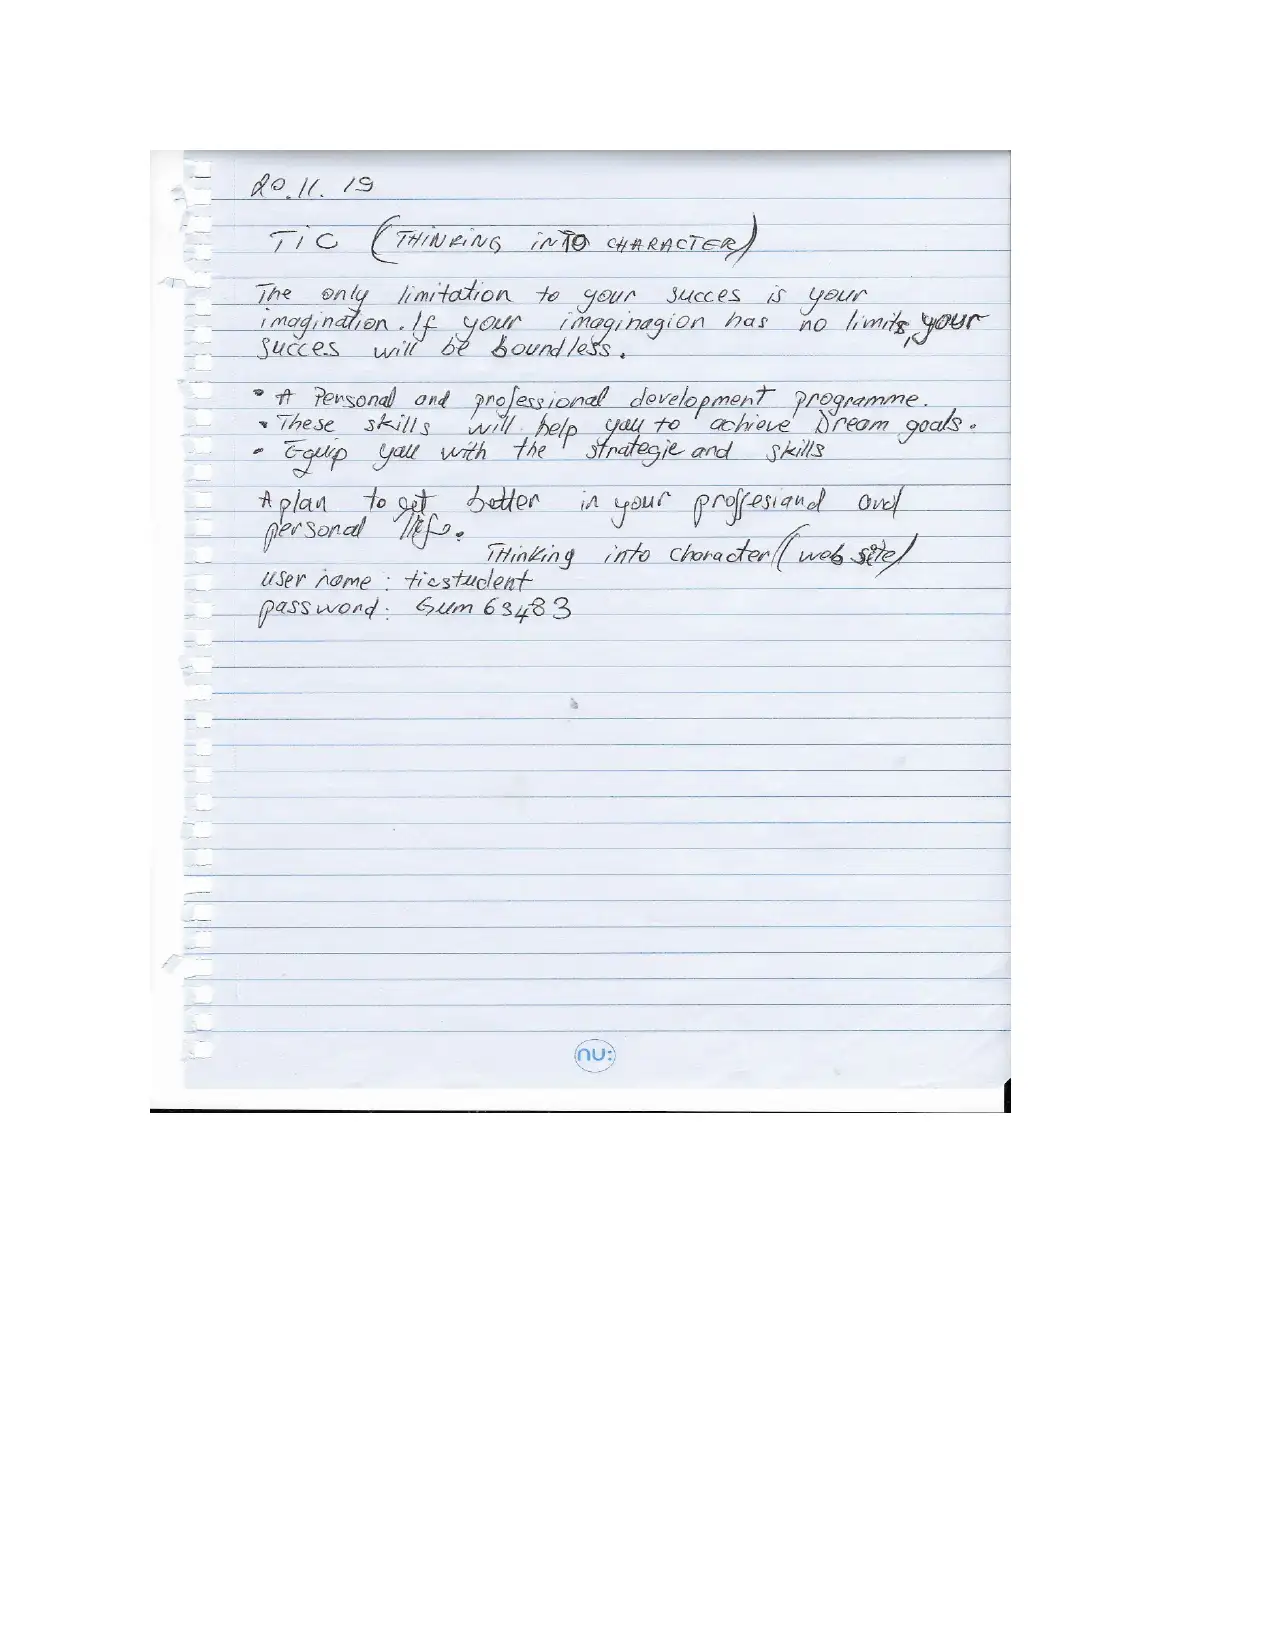 20.11.19
TiC (THiNKiNG iNTO CHARACTER)
The only limitation to your succes is your
imagination. If your imaginagion has no limits, your
succes will be boundless.
• A Personal and professional development programme.
• These skills will help you to achieve Dream goals.
- Equip you with the strategie and skills
A plan to get better in your proffesional and
personal life.
THinking into character (web site)
user name : ticstudent
password : Gum 63483
nu: